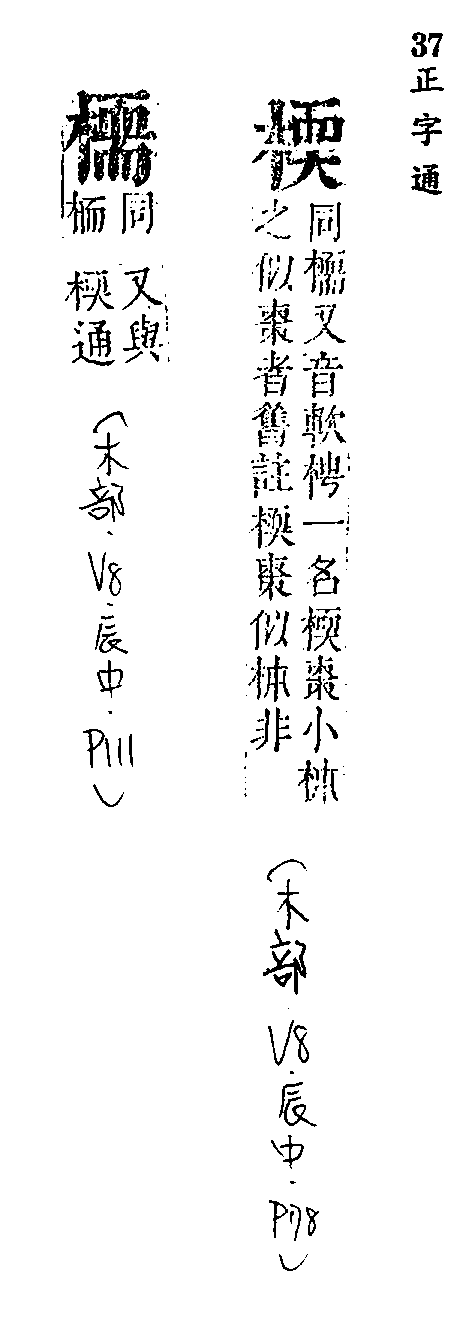 37正字通
㮕
同檽又音軟梬一名㮕棗小柹
之似棗者舊註㮕棗似柹非
(木部.V8.辰中.P78)
檽
同
栭
又與
㮕通
(木部.V8.辰中.P111)